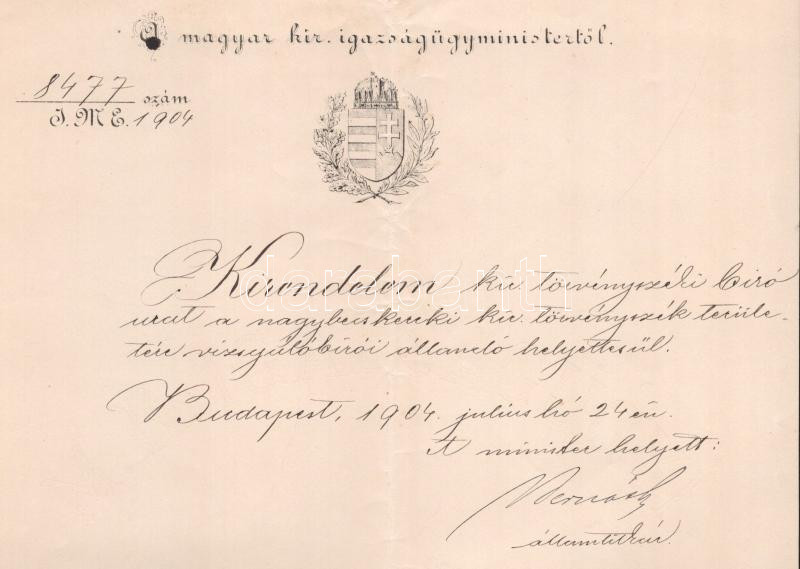 A magyar kir. igazságügyministertől.
8477 szám
I. M. E. 1904
Kirendelem kir. törvényszéki biró
urat a nagybecskereki kir. törvényszék terüle-
tére vizsgálóbirói állandó helyettesül.
Budapest, 1904. julius hó 24 én.
A minister helyett:
államtitkár.
darabanth.com